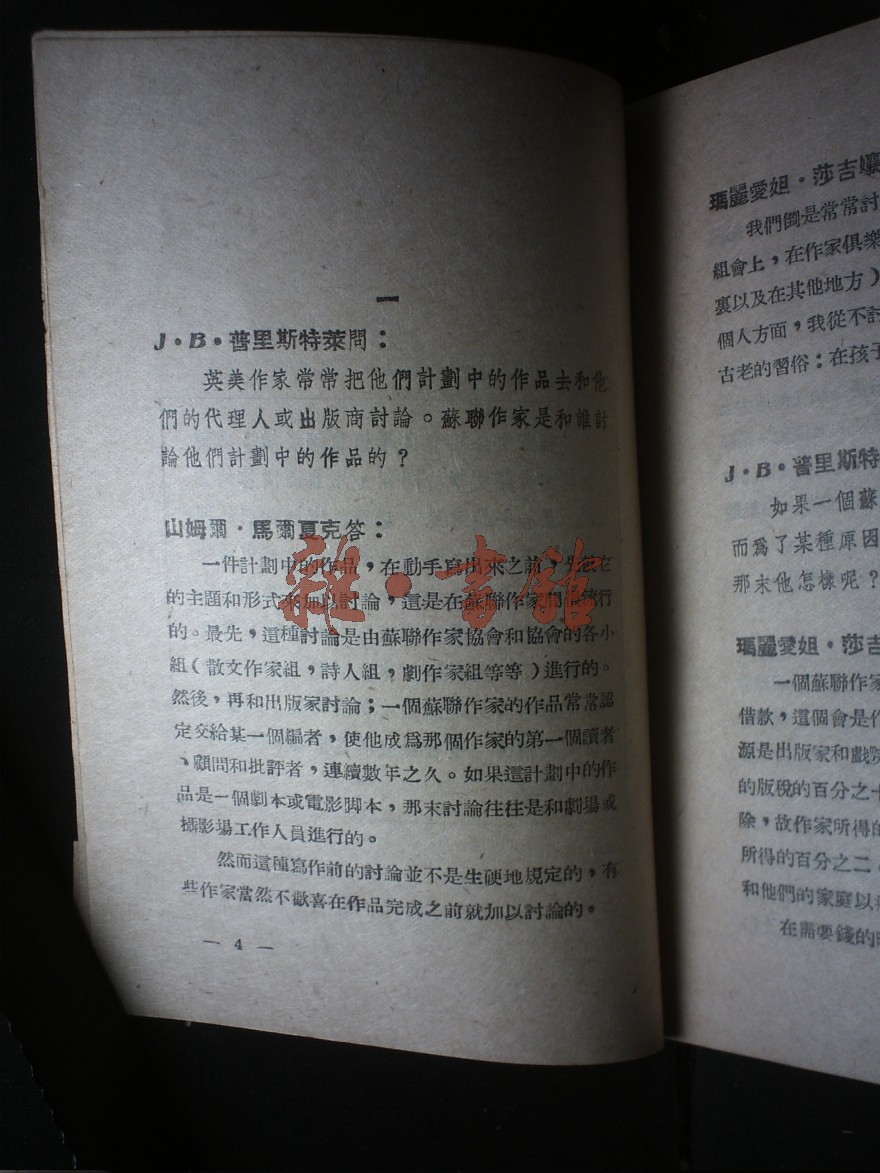 一
J・B・普里斯特萊問：
英美作家常常把他們計劃中的作品去和他
們的代理人或出版商討論。蘇聯作家是和誰討
論他們計劃中的作品的？
山姆爾・馬爾夏克答：
一件計劃中的作品，在動手寫出來之前，先把它
的主題和形式來加以討論，這是在蘇聯作家間很流行
的。最先，這種討論是由蘇聯作家協會和協會的各小
組（散文作家組，詩人組，劇作家組等等）進行的。
然後，再和出版家討論；一個蘇聯作家的作品常常認
定交給某一個編者，使他成爲那個作家的第一個讀者
、顧問和批評者，連續數年之久。如果這計劃中的作
品是一個劇本或電影脚本，那末討論往往是和劇場或
攝影場工作人員進行的。
然而這種寫作前的討論並不是生硬地規定的，有
些作家當然不歡喜在作品完成之前就加以討論的。
— 4 —
瑪麗愛妲・莎吉孃
我們倒是常常討
組會上，在作家俱樂
裏以及在其他地方）
個人方面，我從不討
古老的習俗：在孩子
J・B・普里斯特
如果一個蘇
而爲了某種原因
那末他怎樣呢？
瑪麗愛妲・莎吉
一個蘇聯作家
借款，這個會是作
源是出版家和戲院
的版稅的百分之十
除，故作家所得的
所得的百分之二
和他們的家庭以
在需要錢的時
雜・書館